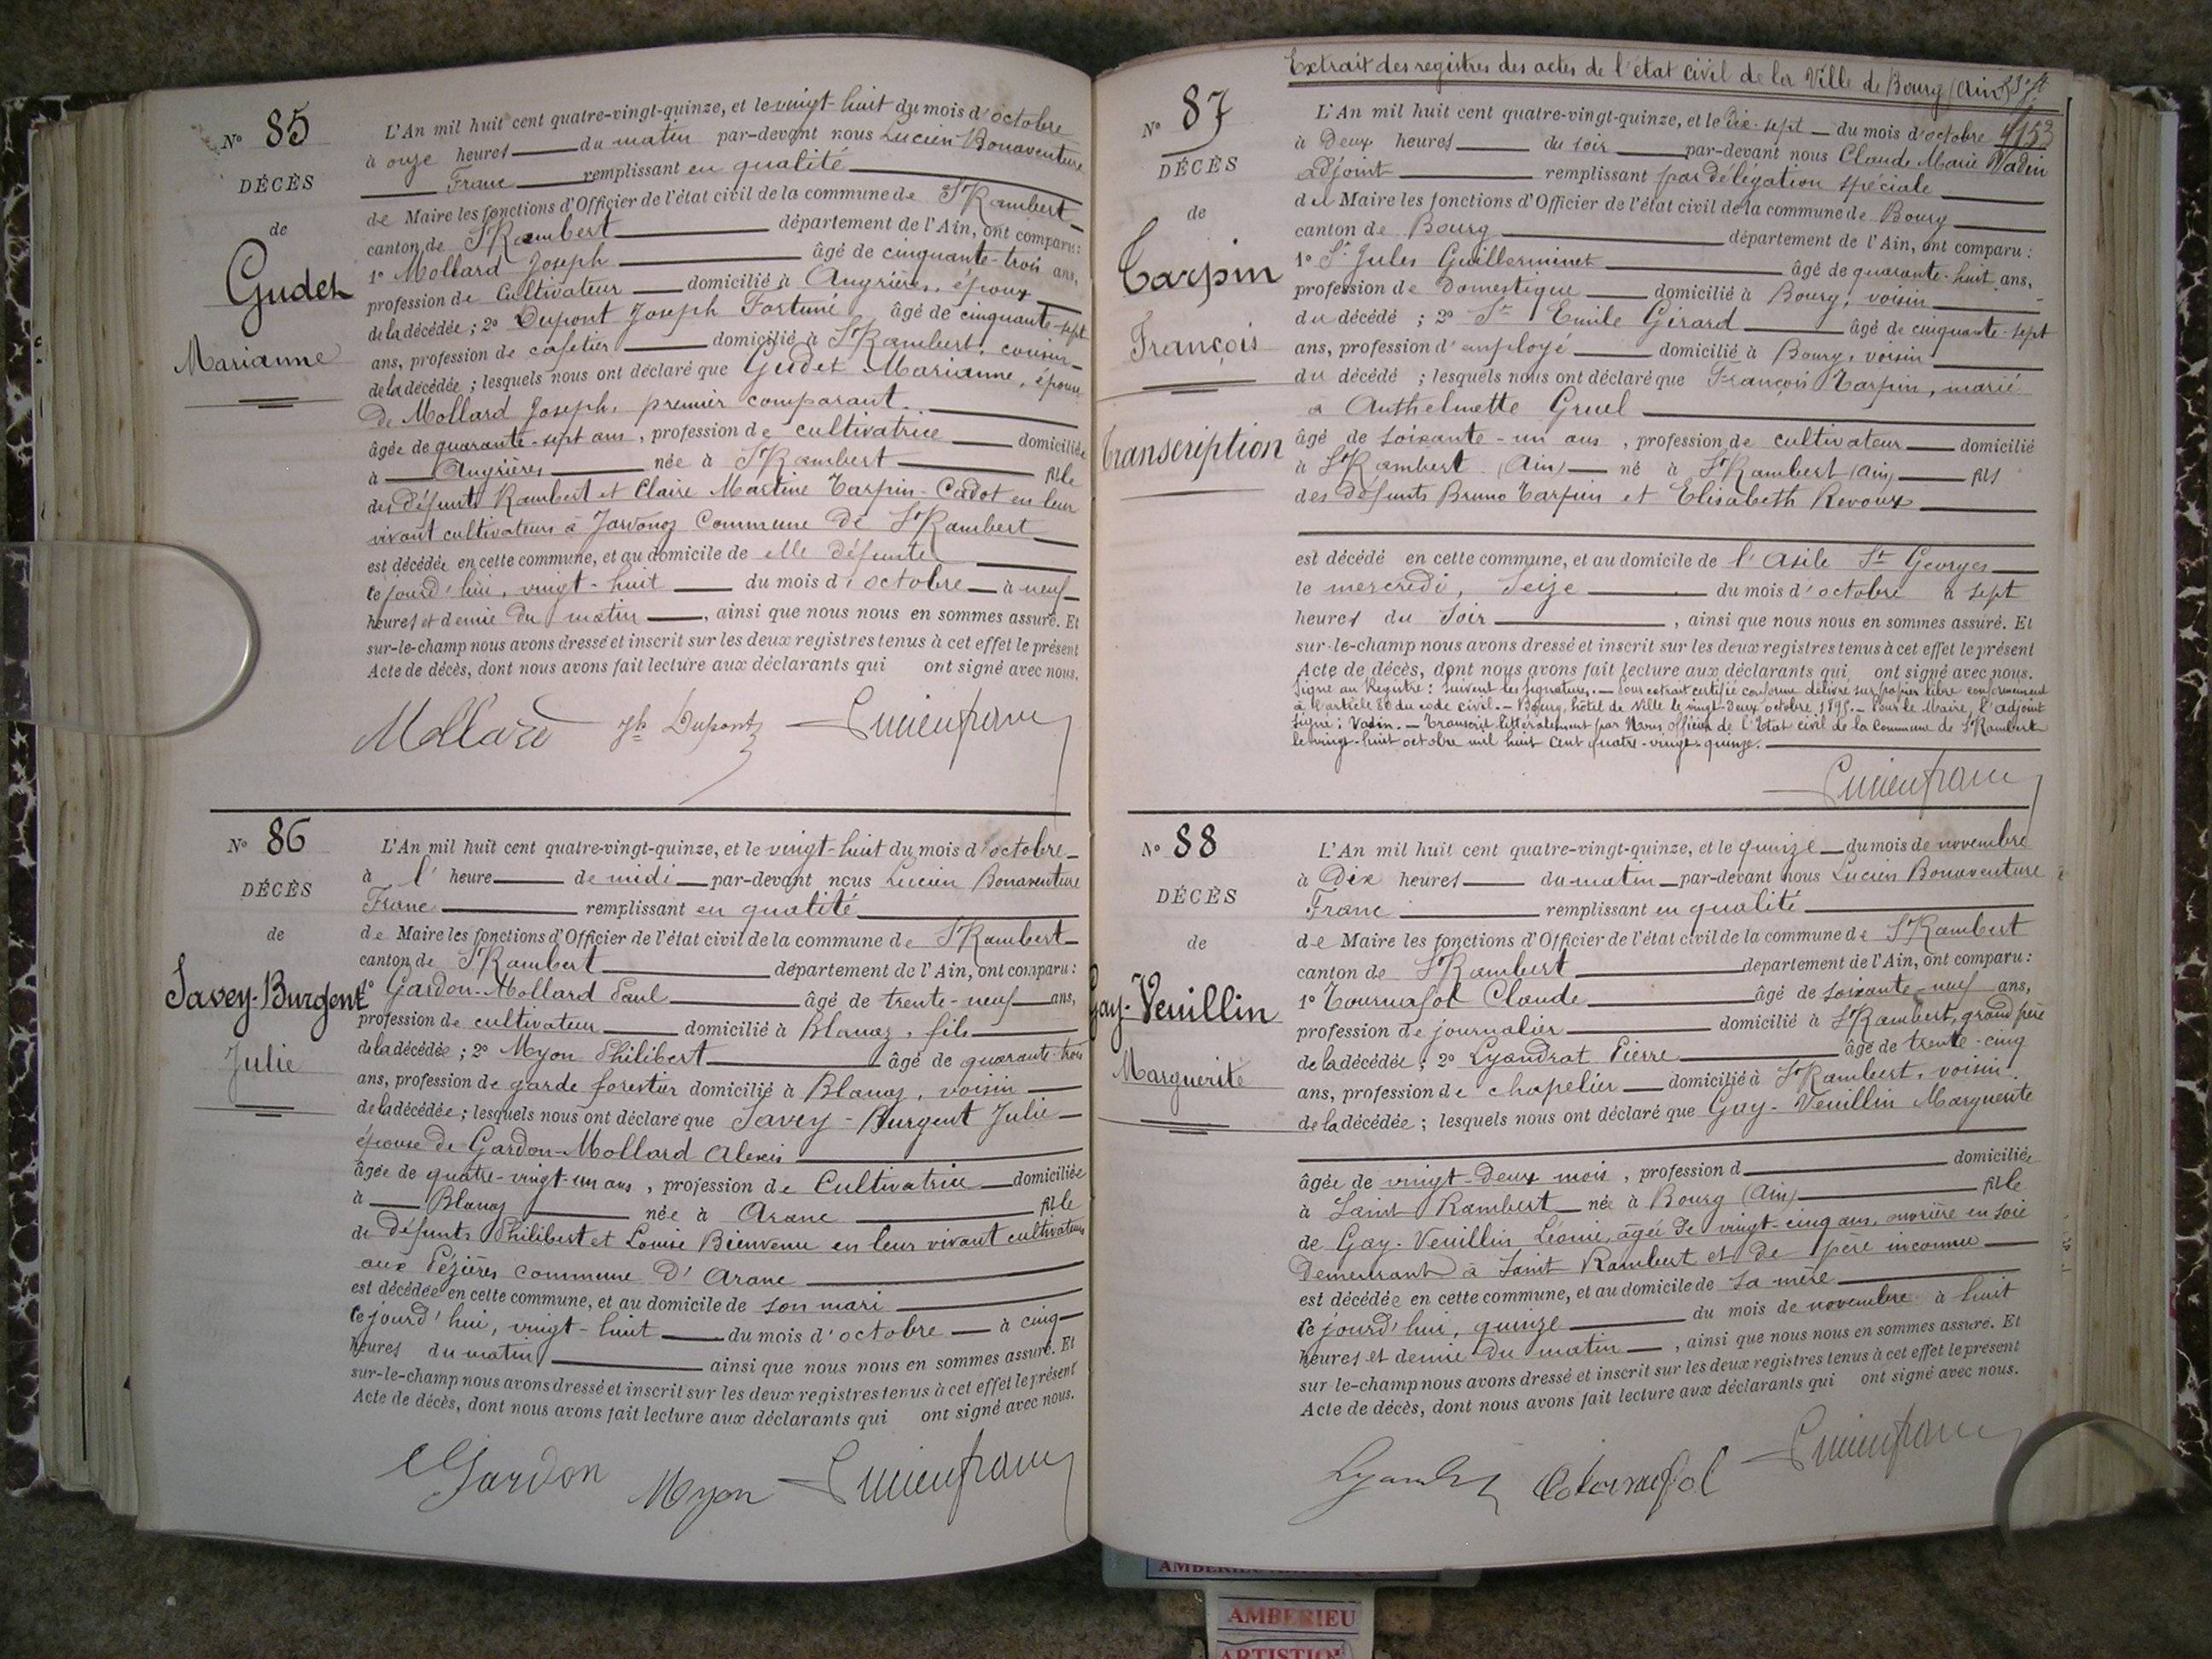 N° 85
DÉCÈS
de
Gudet
Marianne
L'An mil huit cent quatre-vingt-quinze, et le vingt-huit du mois d'octobre
à onze heures du matin par-devant nous Lucien Bonaventure
Franc remplissant en qualité
de Maire les fonctions d'Officier de l'état civil de la commune de St Rambert
canton de St Rambert département de l'Ain, ont comparu :
1° Mollard Joseph âgé de cinquante-trois ans,
profession de cultivateur domicilié à Angrières, époux
de la décédée ; 2° Dupont Joseph Fortuné âgé de cinquante-sept
ans, profession de cafetier domicilié à St Rambert, cousin
de la décédée ; lesquels nous ont déclaré que Gudet Marianne, épouse
de Mollard Joseph, premier comparant
âgée de quarante-sept ans, profession de cultivatrice domiciliée
à Angrières née à St Rambert fille
des défunts Rambert et Claire Martine Tarpin-Cadot en leur
vivant cultivateurs à Javonoz Commune de St Rambert
est décédée en cette commune, et au domicile de elle défunte
ce jourd'hui, vingt-huit du mois d'octobre à neuf
heures et demie du matin, ainsi que nous nous en sommes assuré. Et
sur-le-champ nous avons dressé et inscrit sur les deux registres tenus à cet effet le présent
Acte de décès, dont nous avons fait lecture aux déclarants qui ont signé avec nous.
Mollard Jh Dupont Lucien franc
N° 86
DÉCÈS
de
Savey-Burgent
Julie
L'An mil huit cent quatre-vingt-quinze, et le vingt-huit du mois d'octobre
à l' heure de midi par-devant nous Lucien Bonaventure
Franc remplissant en qualité
de Maire les fonctions d'Officier de l'état civil de la commune de St Rambert
canton de St Rambert département de l'Ain, ont comparu :
1° Gardon-Mollard Paul âgé de trente-neuf ans,
profession de cultivateur domicilié à Blanaz, fils
de la décédée ; 2° Myon Philibert âgé de quarante-trois
ans, profession de garde forestier domicilié à Blanaz, voisin
de la décédée ; lesquels nous ont déclaré que Savey-Burgent Julie
épouse de Gardon-Mollard Alexis
âgée de quatre-vingt-un ans, profession de Cultivatrice domiciliée
à Blanaz née à Aranc fille
de défunts Philibert et Louise Bienvenu en leur vivant cultivateurs
aux Pézières commune d'Aranc
est décédée en cette commune, et au domicile de son mari
ce jourd'hui, vingt-huit du mois d'octobre à cinq
heures du matin ainsi que nous nous en sommes assuré. Et
sur-le-champ nous avons dressé et inscrit sur les deux registres tenus à cet effet le présent
Acte de décès, dont nous avons fait lecture aux déclarants qui ont signé avec nous.
Gardon Myon Lucien franc
Extrait des registres des actes de l'état civil de la Ville de Bourg (Ain)
N° 87
DÉCÈS
de
Tarpin
François
Transcription
L'An mil huit cent quatre-vingt-quinze, et le dix-sept du mois d'octobre
à Deux heures du soir par-devant nous Claude Marie Vadin
adjoint remplissant par délégation spéciale
de Maire les fonctions d'Officier de l'état civil de la commune de Bourg
canton de Bourg département de l'Ain, ont comparu :
1° Sr Jules Guillerminet âgé de quarante-huit ans,
profession de Domestique domicilié à Bourg, voisin
du décédé ; 2° Sr Emile Girard âgé de cinquante-sept
ans, profession d'employé domicilié à Bourg, voisin
du décédé ; lesquels nous ont déclaré que François Tarpin, marié
à Anthelmette Gruel
âgé de soixante-un ans, profession de cultivateur domicilié
à St Rambert (Ain) né à St Rambert (Ain) fils
des défunts Bruno Tarpin et Elisabeth Revoux
est décédé en cette commune, et au domicile de l'Asile St Georges
le mercredi, seize du mois d'octobre à sept
heures du soir, ainsi que nous nous en sommes assuré. Et
sur-le-champ nous avons dressé et inscrit sur les deux registres tenus à cet effet le présent
Acte de décès, dont nous avons fait lecture aux déclarants qui ont signé avec nous.
Signé au Registre : suivent les signatures. — Pour extrait certifié conforme délivré sur papier libre conformément
à l'article 80 du code civil. — Bourg, hôtel de Ville le vingt-deux octobre 1895. — Pour le Maire, l'adjoint
signé : Vadin. — Transcrit littéralement par Nous officier de l'Etat civil de la Commune de St Rambert
le vingt-huit octobre mil huit cent quatre-vingt-quinze.
Lucien franc
N° 88
DÉCÈS
de
Gay-Veuillin
Marguerite
L'An mil huit cent quatre-vingt-quinze, et le quinze du mois de novembre
à Dix heures du matin par-devant nous Lucien Bonaventure
Franc remplissant en qualité
de Maire les fonctions d'Officier de l'état civil de la commune de St Rambert
canton de St Rambert département de l'Ain, ont comparu :
1° Tournafol Claude âgé de soixante-neuf ans,
profession de journalier domicilié à St Rambert, grand père
de la décédée ; 2° Lyandrat Pierre âgé de trente-cinq
ans, profession de chapelier domicilié à St Rambert, voisin
de la décédée ; lesquels nous ont déclaré que Gay-Veuillin Marguerite
âgée de vingt-deux mois, profession d domiciliée
à Saint Rambert née à Bourg (Ain) fille
de Gay-Veuillin Léonie, âgée de vingt-cinq ans, ouvrière en soie
Demeurant à Saint Rambert et de père inconnu
est décédée en cette commune, et au domicile de sa mère
ce jourd'hui, quinze du mois de novembre à huit
heures et demie du matin, ainsi que nous nous en sommes assuré. Et
sur-le-champ nous avons dressé et inscrit sur les deux registres tenus à cet effet le présent
Acte de décès, dont nous avons fait lecture aux déclarants qui ont signé avec nous.
Tournafol Lucien franc
AMBERIEU
AMBERIEU
ARTISTIQUE